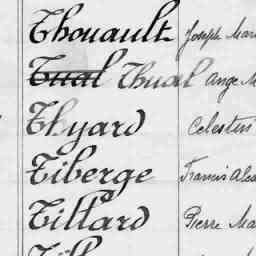 Thouault Joseph Mar
Tual Thual Ange M
Thyard Celestin
Tiberge Francis Alex
Tillard Pierre Ma
Till